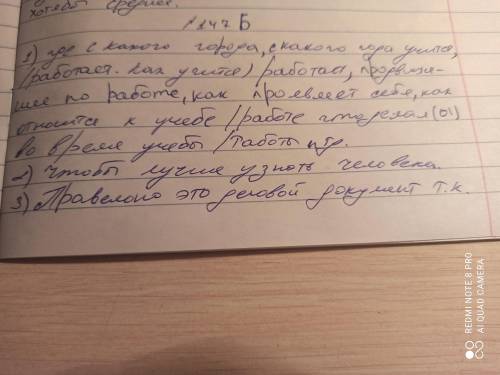 хотябы среднее.
№ 147 Б
1) где с какого города, с какого года учится,
/работает. как учится) работает, продвиже-
ние по работе, как проявляет себя, как
относится к учебе / работе что делал(а)
во время учебы / работы итр.
2) чтобы лучше узнать человека.
3) Правельно это деловой документ т.к.
REDMI NOTE 8 PRO
AI QUAD CAMERA